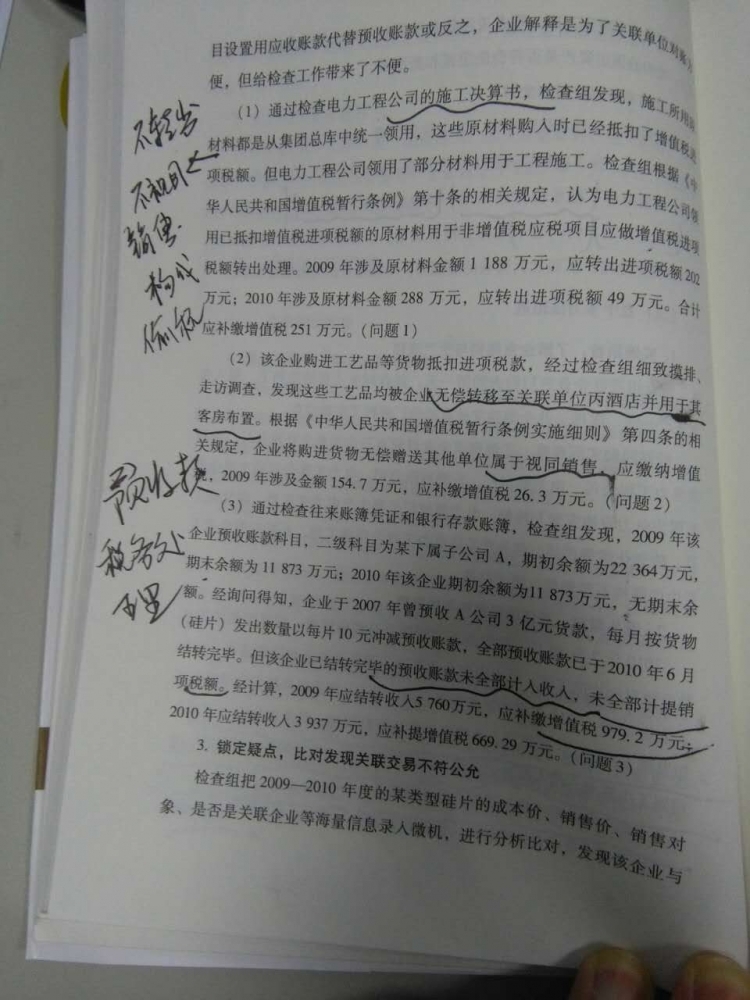 目设置用应收账款代替预收账款或反之，企业解释是为了关联单位对账方
便，但给检查工作带来了不便。
（1）通过检查电力工程公司的施工决算书，检查组发现，施工所用
材料都是从集团总库中统一领用，这些原材料购入时已经抵扣了增值税进
项税额。但电力工程公司领用了部分材料用于工程施工。检查组根据《中
华人民共和国增值税暂行条例》第十条的相关规定，认为电力工程公司领
用已抵扣增值税进项税额的原材料用于非增值税应税项目应做增值税进项
税额转出处理。2009 年涉及原材料金额 1 188 万元，应转出进项税额 202
万元；2010 年涉及原材料金额 288 万元，应转出进项税额 49 万元。合计
应补缴增值税 251 万元。（问题 1）
（2）该企业购进工艺品等货物抵扣进项税款，经过检查组细致摸排、
走访调查，发现这些工艺品均被企业无偿转移至关联单位丙酒店并用于其
客房布置。根据《中华人民共和国增值税暂行条例实施细则》第四条的相
关规定，企业将购进货物无偿赠送其他单位属于视同销售，应缴纳增值
，2009 年涉及金额 154.7 万元，应补缴增值税 26.3 万元。（问题 2）
（3）通过检查往来账簿凭证和银行存款账簿，检查组发现，2009 年该
企业预收账款科目，二级科目为某下属子公司 A，期初余额为22 364万元，
期末余额为 11 873 万元；2010 年该企业期初余额为11 873万元，无期末余
额。经询问得知，企业于 2007 年曾预收 A 公司 3 亿元货款，每月按货物
（硅片）发出数量以每片 10 元冲减预收账款，全部预收账款已于 2010 年 6 月
结转完毕。但该企业已结转完毕的预收账款未全部计入收入，未全部计提销
项税额。经计算，2009 年应结转收入5 760万元，应补缴增值税 979.2 万元；
2010 年应结转收入 3 937 万元，应补提增值税 669.29 万元。（问题 3）
3. 锁定疑点，比对发现关联交易不符公允
检查组把 2009—2010 年度的某类型硅片的成本价、销售价、销售对
象、是否是关联企业等海量信息录入微机，进行分析比对，发现该企业与
预收款
税务处
理